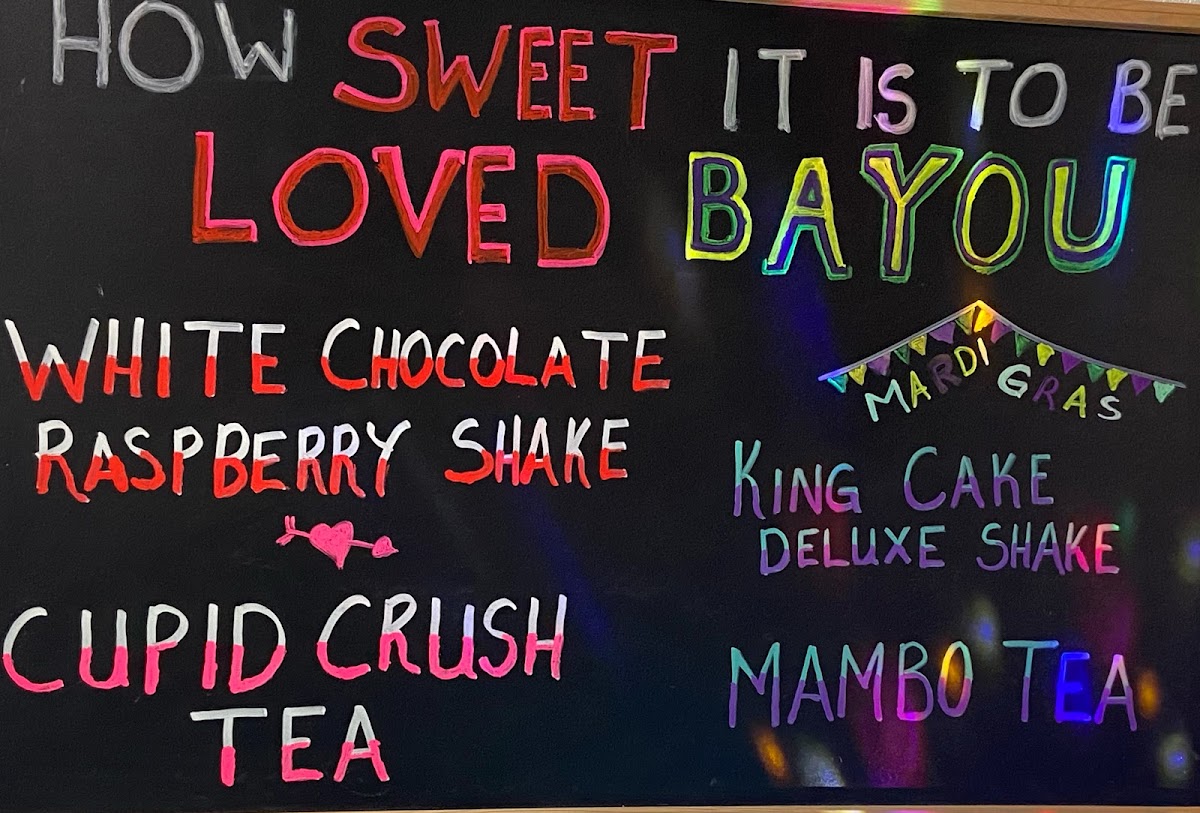 HOW SWEET IT IS TO BE
LOVED BAYOU
WHITE CHOCOLATE
RASPBERRY SHAKE
CUPID CRUSH
TEA
MARDI GRAS
KING CAKE
DELUXE SHAKE
MAMBO TEA